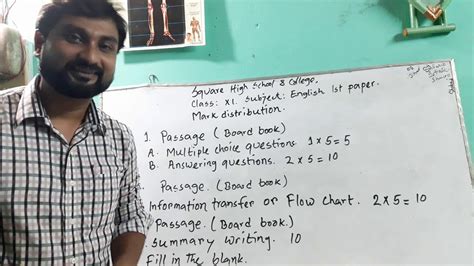 Square High School & College.
Class: XI. Subject: English 1st paper.
Mark distribution.
1. Passage (Board book)
A. Multiple choice questions 1×5=5
B. Answering questions. 2×5=10
Passage. (Board book)
Information transfer or Flow chart. 2×5=10
Passage. (Board book.)
Summary writing. 10
Fill in the blank.